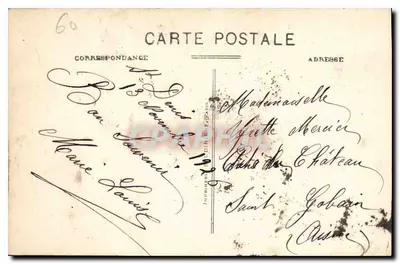 60
CARTE POSTALE
CORRESPONDANCE
ADRESSE
St Denis
13 1926
Bon Souvenir
Marie Louise
Mademoiselle
Yvette Mercier
Cité du Château
Saint Gobain
(Aisne)